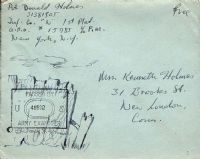 Pvt Donald Holmes
31381805
Inf. Co. "N" 1st Plat
A.P.O. # 15787 c/o P.M.
New York, N.Y.
Free
Mrs. Kenneth Holmes
31 Brooks St.
New London,
Conn.
PASSED BY
U S
48592
ARMY EXAMINER